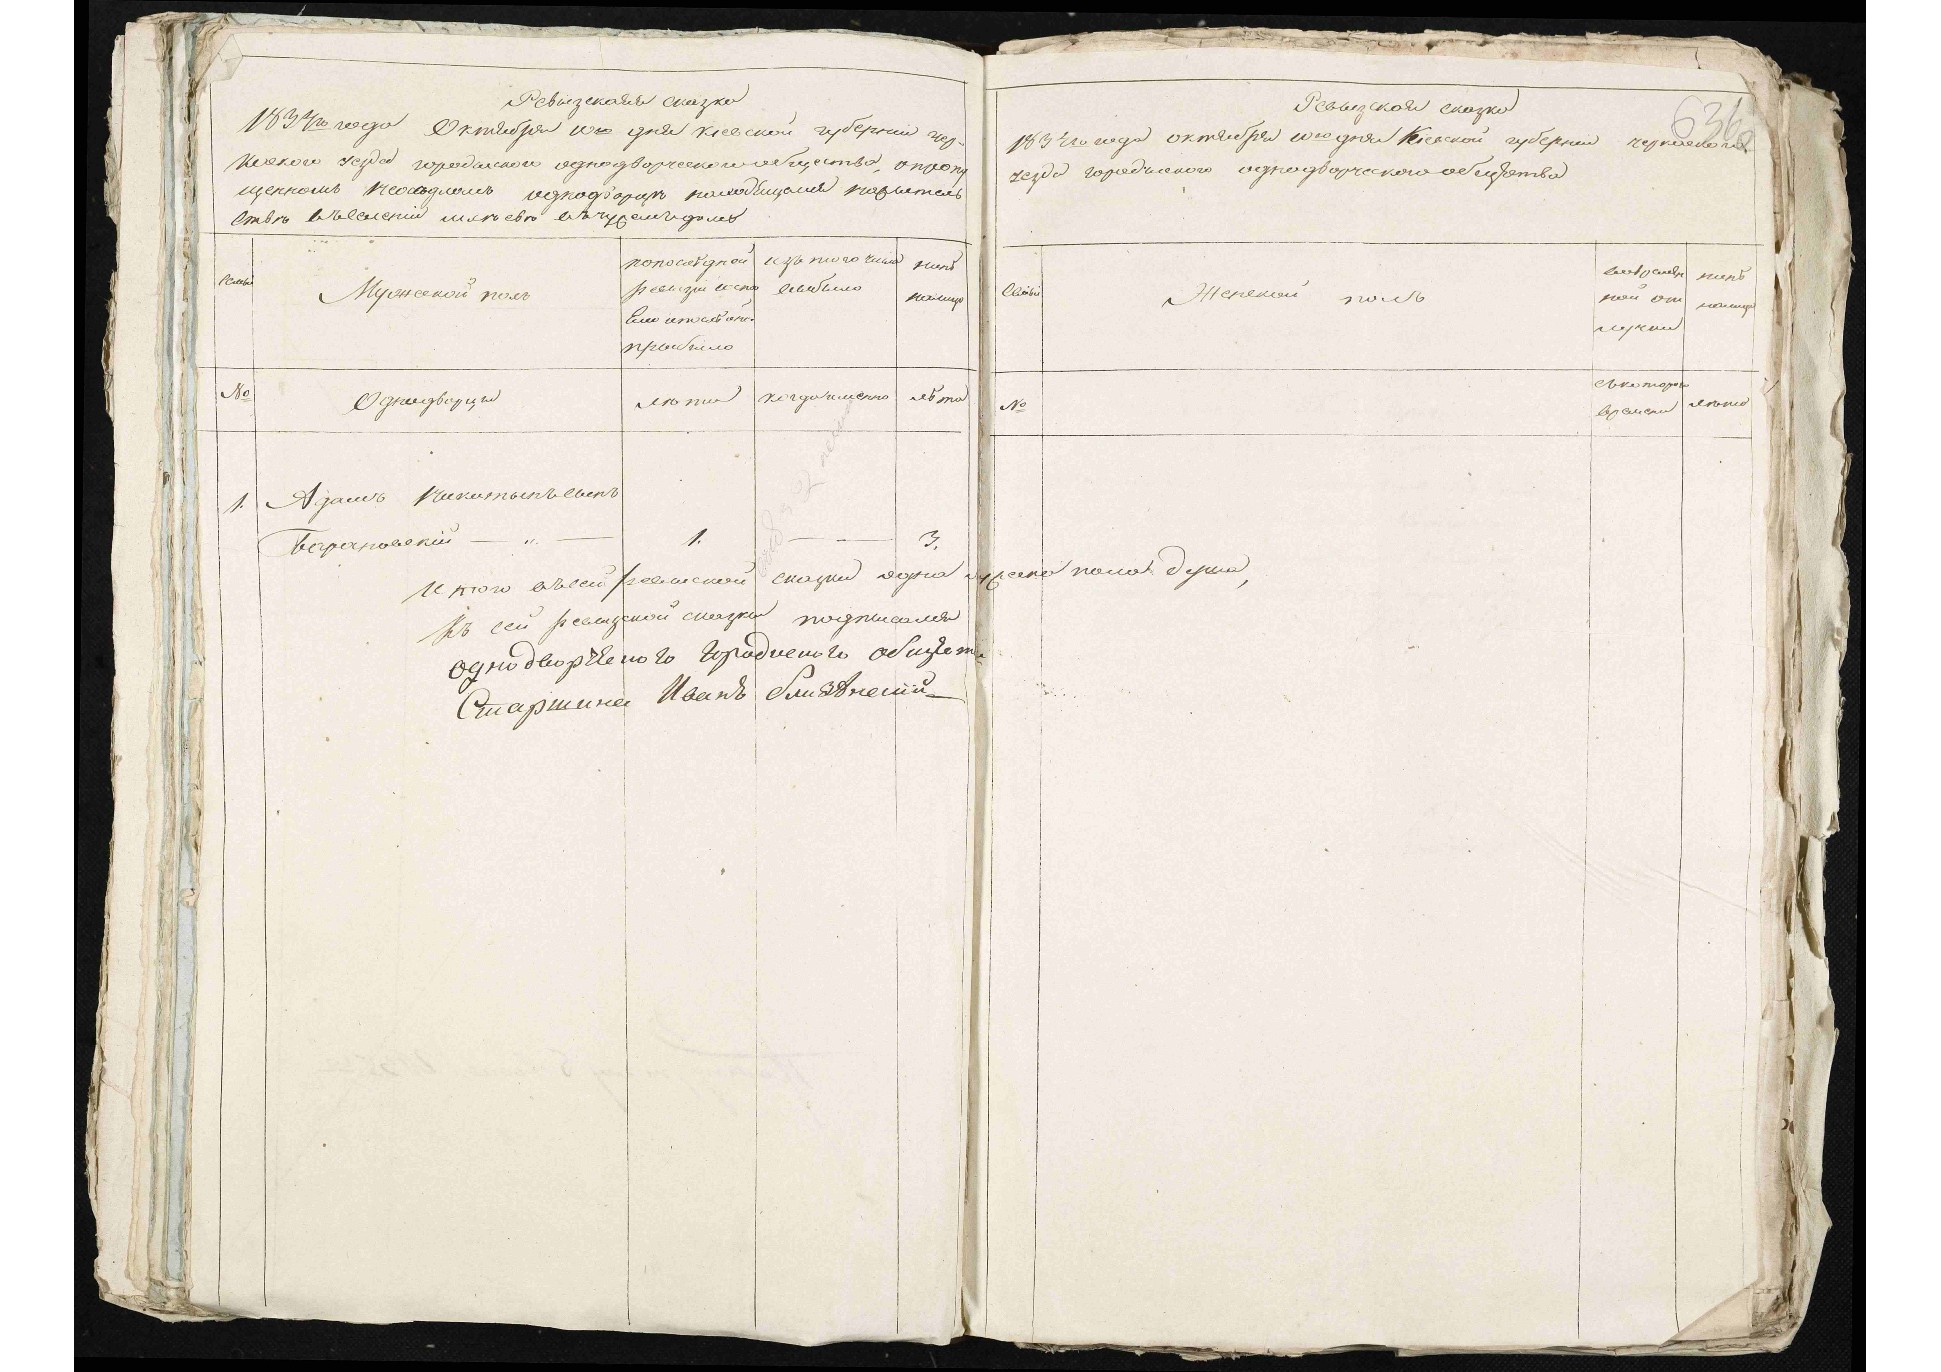 Ревизская сказка
1834го года Октября 10го дня Киевской губернии чер-
каского уезда городиского однодворческого общества, о пропу
щенном однодворце находящемся по жительс
тве в селении
семьи
Мужеской пол
по последной
ревизии состо
яло и после оной
прибыло
из того числа
выбыло
ныне
налицо
№
Однодворцы
лета
когда именно
лета
1. Адамъ Никитынъ сынъ
Барановский — „ — 1. — — 3.
Итого в сей ревизской сказки одна мужеска пола душа,
К сей ревизской сказки подписался
однодворческого Городиского общества
Старшина Иванъ
Ревизская сказка
636
1834го года октября 10го дня Киевской губернии черкаского
уезда городиского однодворческого общества
семьи
Женской полъ
во времен
ной от
лучки
ныне
налицо
№
с которого
времени
лета